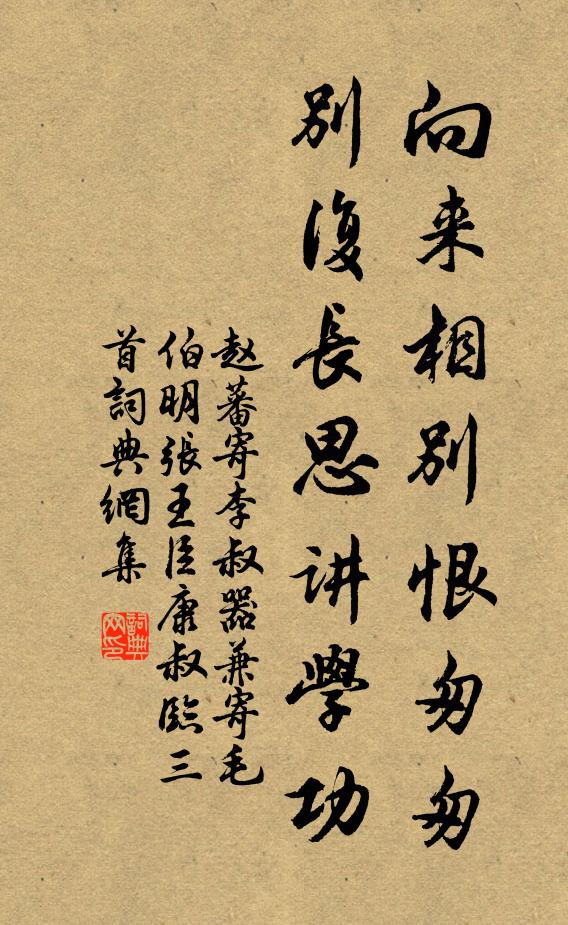 向来相别恨匆匆
别復長思讲學功
赵蕃寄李叔器兼寄毛
伯明張王臣康叔臨三
首詞典網集
詞典網印